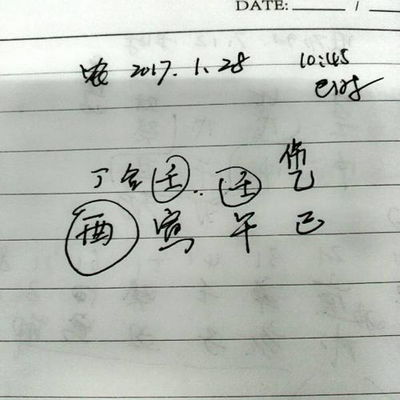 DATE: /
农 2017.1.28 10:45
巳时
伤
丁合壬..壬 乙
酉 寅 午 巳